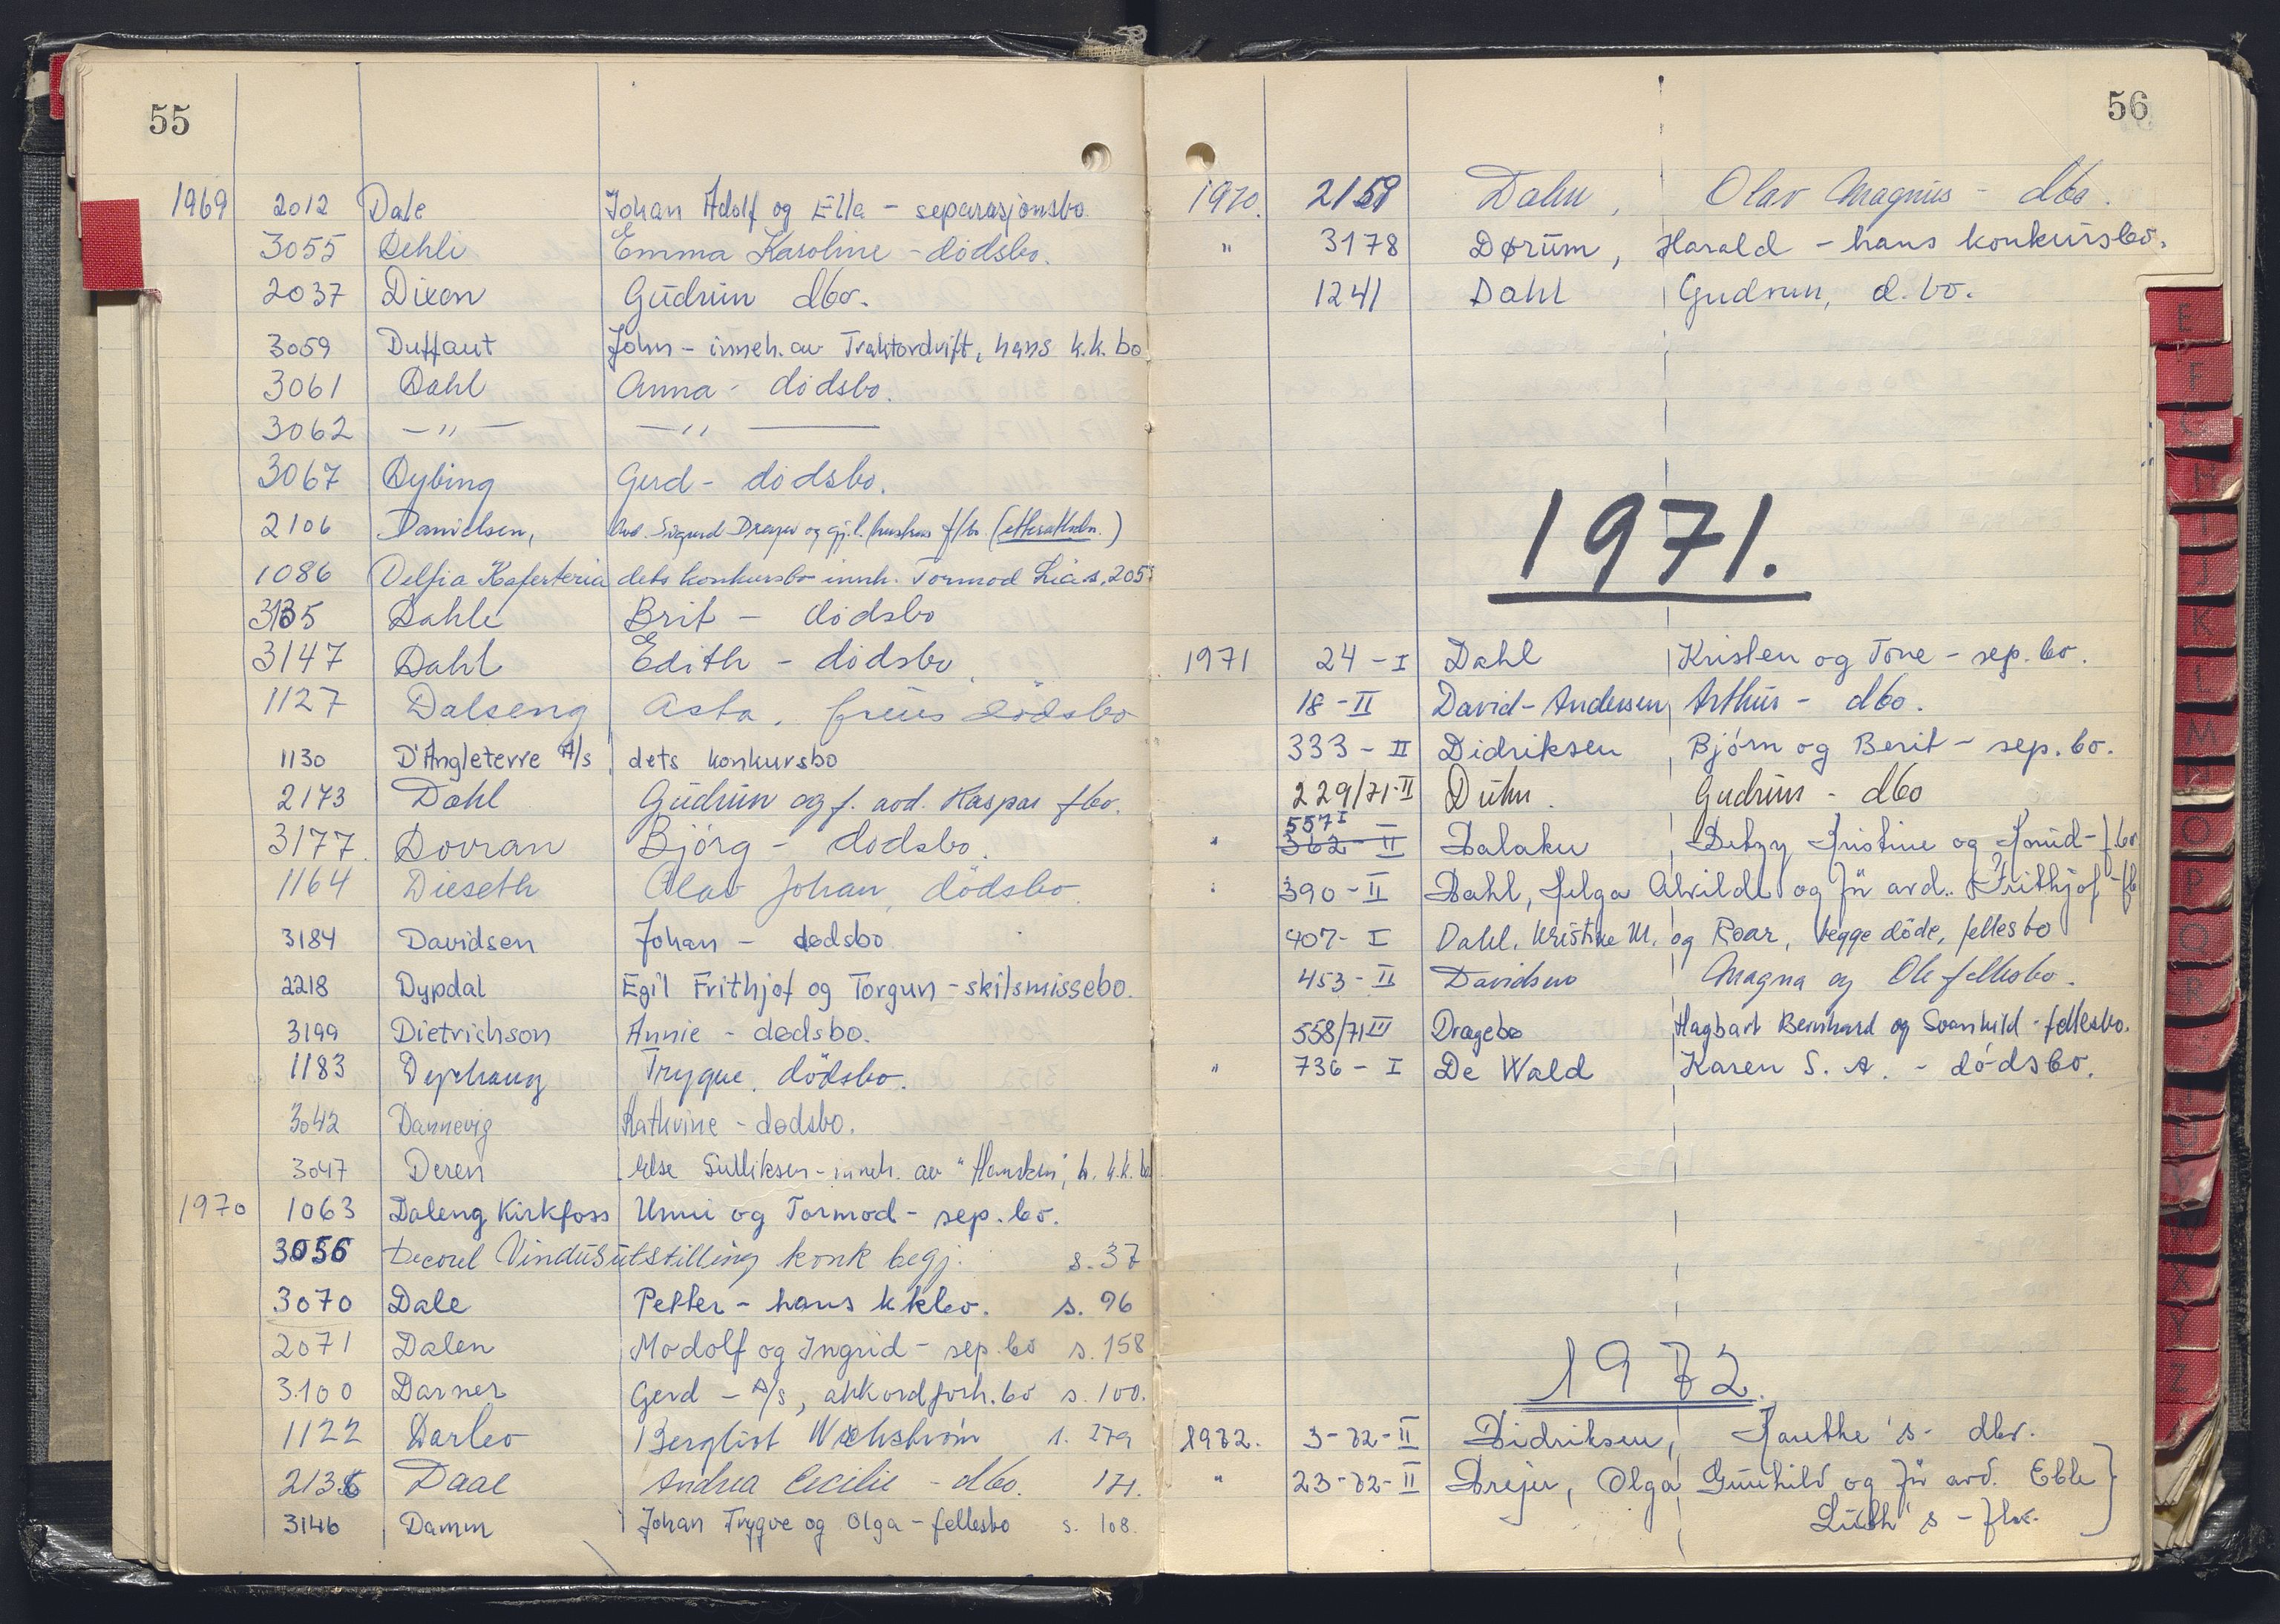 55
1969 2012 Dale Johan Adolf og Ella - separasjonsbo
3055 Dehli Emma Karoline - dødsbo.
2037 Dixon Gudrun dbo.
3059 Duffaut John - inneh. av Traktordrift, hans k.k. bo
3061 Dahl Anna - dødsbo.
3062 - " - - " -
3067 Dybing Gerd - dødsbo.
2106 Danielsen, Avd. Sigurd og gj.l. f/bo.
1086 Delfia Kafeteria dets konkursbo innh. Tormod s. 205
3135 Dahle Brit - dødsbo
3147 Dahl Edith - dødsbo
1127 Dalseng Asta, frues dödsbo
1130 D'Angleterre A/s dets konkursbo
2173 Dahl Gudrun og f. avd. Kaspar fbo.
3177 Dovran Bjørg - dødsbo.
1164 Dieseth Olav Johan, dödsbo.
3184 Davidsen Johan - dødsbo
2218 Dypdal Egil Frithjof og Torgun - skilsmissebo.
3199 Dietrichson Annie - dødsbo.
1183 Dyrhaug Trygve, dödsbo.
3042 Dannevig Kathrine - dødsbo.
3047 Deren Else - inneh. av h. k.k. bo
1970 1063 Daleng Kirkfoss Unni og Tormod - sep. bo.
3056 Vindusutstilling konk begj. s. 37
3070 Dale Petter - hans kkbo. s. 96
2071 Dalen Modolf og Ingrid - sep. bo s. 158
3100 Darner Gerd - A/s, akkordforh. bo s. 100.
1122 Darleo Bergliot s. 279
2136 Daae Andrea Cecilie - dbo. 171.
3146 Damm Johan Trygve og Olga - fellesbo s. 108.
56
1970. 2159 Dahn, Olav Magnus - dbo.
" 3178 Dørum, Harald - hans konkursbo.
1241 Dahl Gudrun, d. bo.
1971.
1971 24 - I Dahl Kristen og Tone - sep. bo.
18 - II David-Andersen, Arthur - dbo.
333 - II Didriksen, Bjørn og Berit - sep. bo.
229/71-II Duhn. Gudrun - dbo
557 I
" 362 - II Dalaker, Betzy Kristine og Knud - fbo
" 390 - II Dahl, Helga Alvilde og før avd. Frithjof - fb
407 - I Dahl, Kristine M. og Roar, begge döde, fellesbo
453 - II Davidsen Magna og Ole fellesbo.
558/71 II Dragebø Hagbart Bernhard og Svanhild - fellesbo.
" 736 - I De Wald Karen S. A. - dødsbo.
1972.
1972. 3-72-II Didriksen, Marethe's - dbo.
" 23-72-II Dreyer, Olga Gunhild og før avd. Ebbe
's - fbo.
E
F
G
H
I
J
K
L
M
N
O
P
Q
R
X
Y
Z